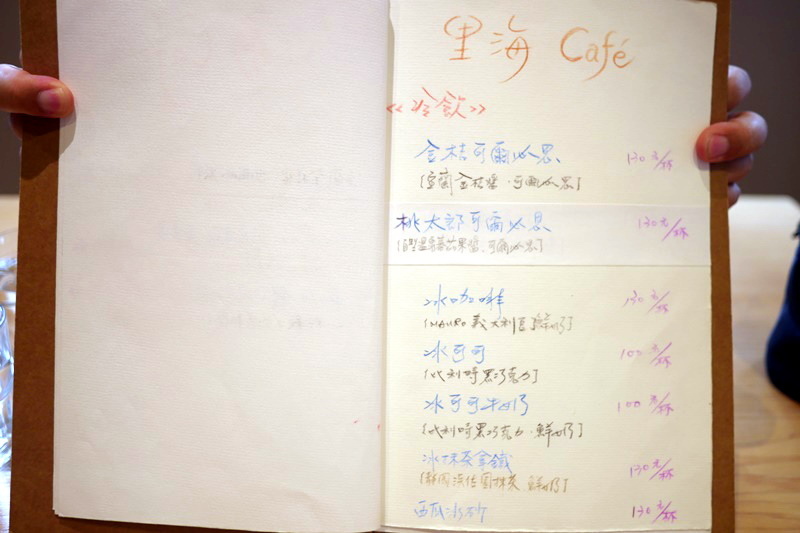 里海 Café
<<冷飲>>
金桔可爾必思 130元/杯
[宜蘭金桔醬、可爾必思]
桃太郎可爾必思 130元/杯
可爾必思]
冰咖啡 130元/杯
[MAURO義大利豆 鮮奶]
冰可可 100元/杯
[比利時黑巧克力]
冰可可牛奶 100元/杯
[比利時黑巧克力、鮮奶]
冰抹茶拿鐵 130元/杯
鮮奶]
西瓜冰砂 130元/杯